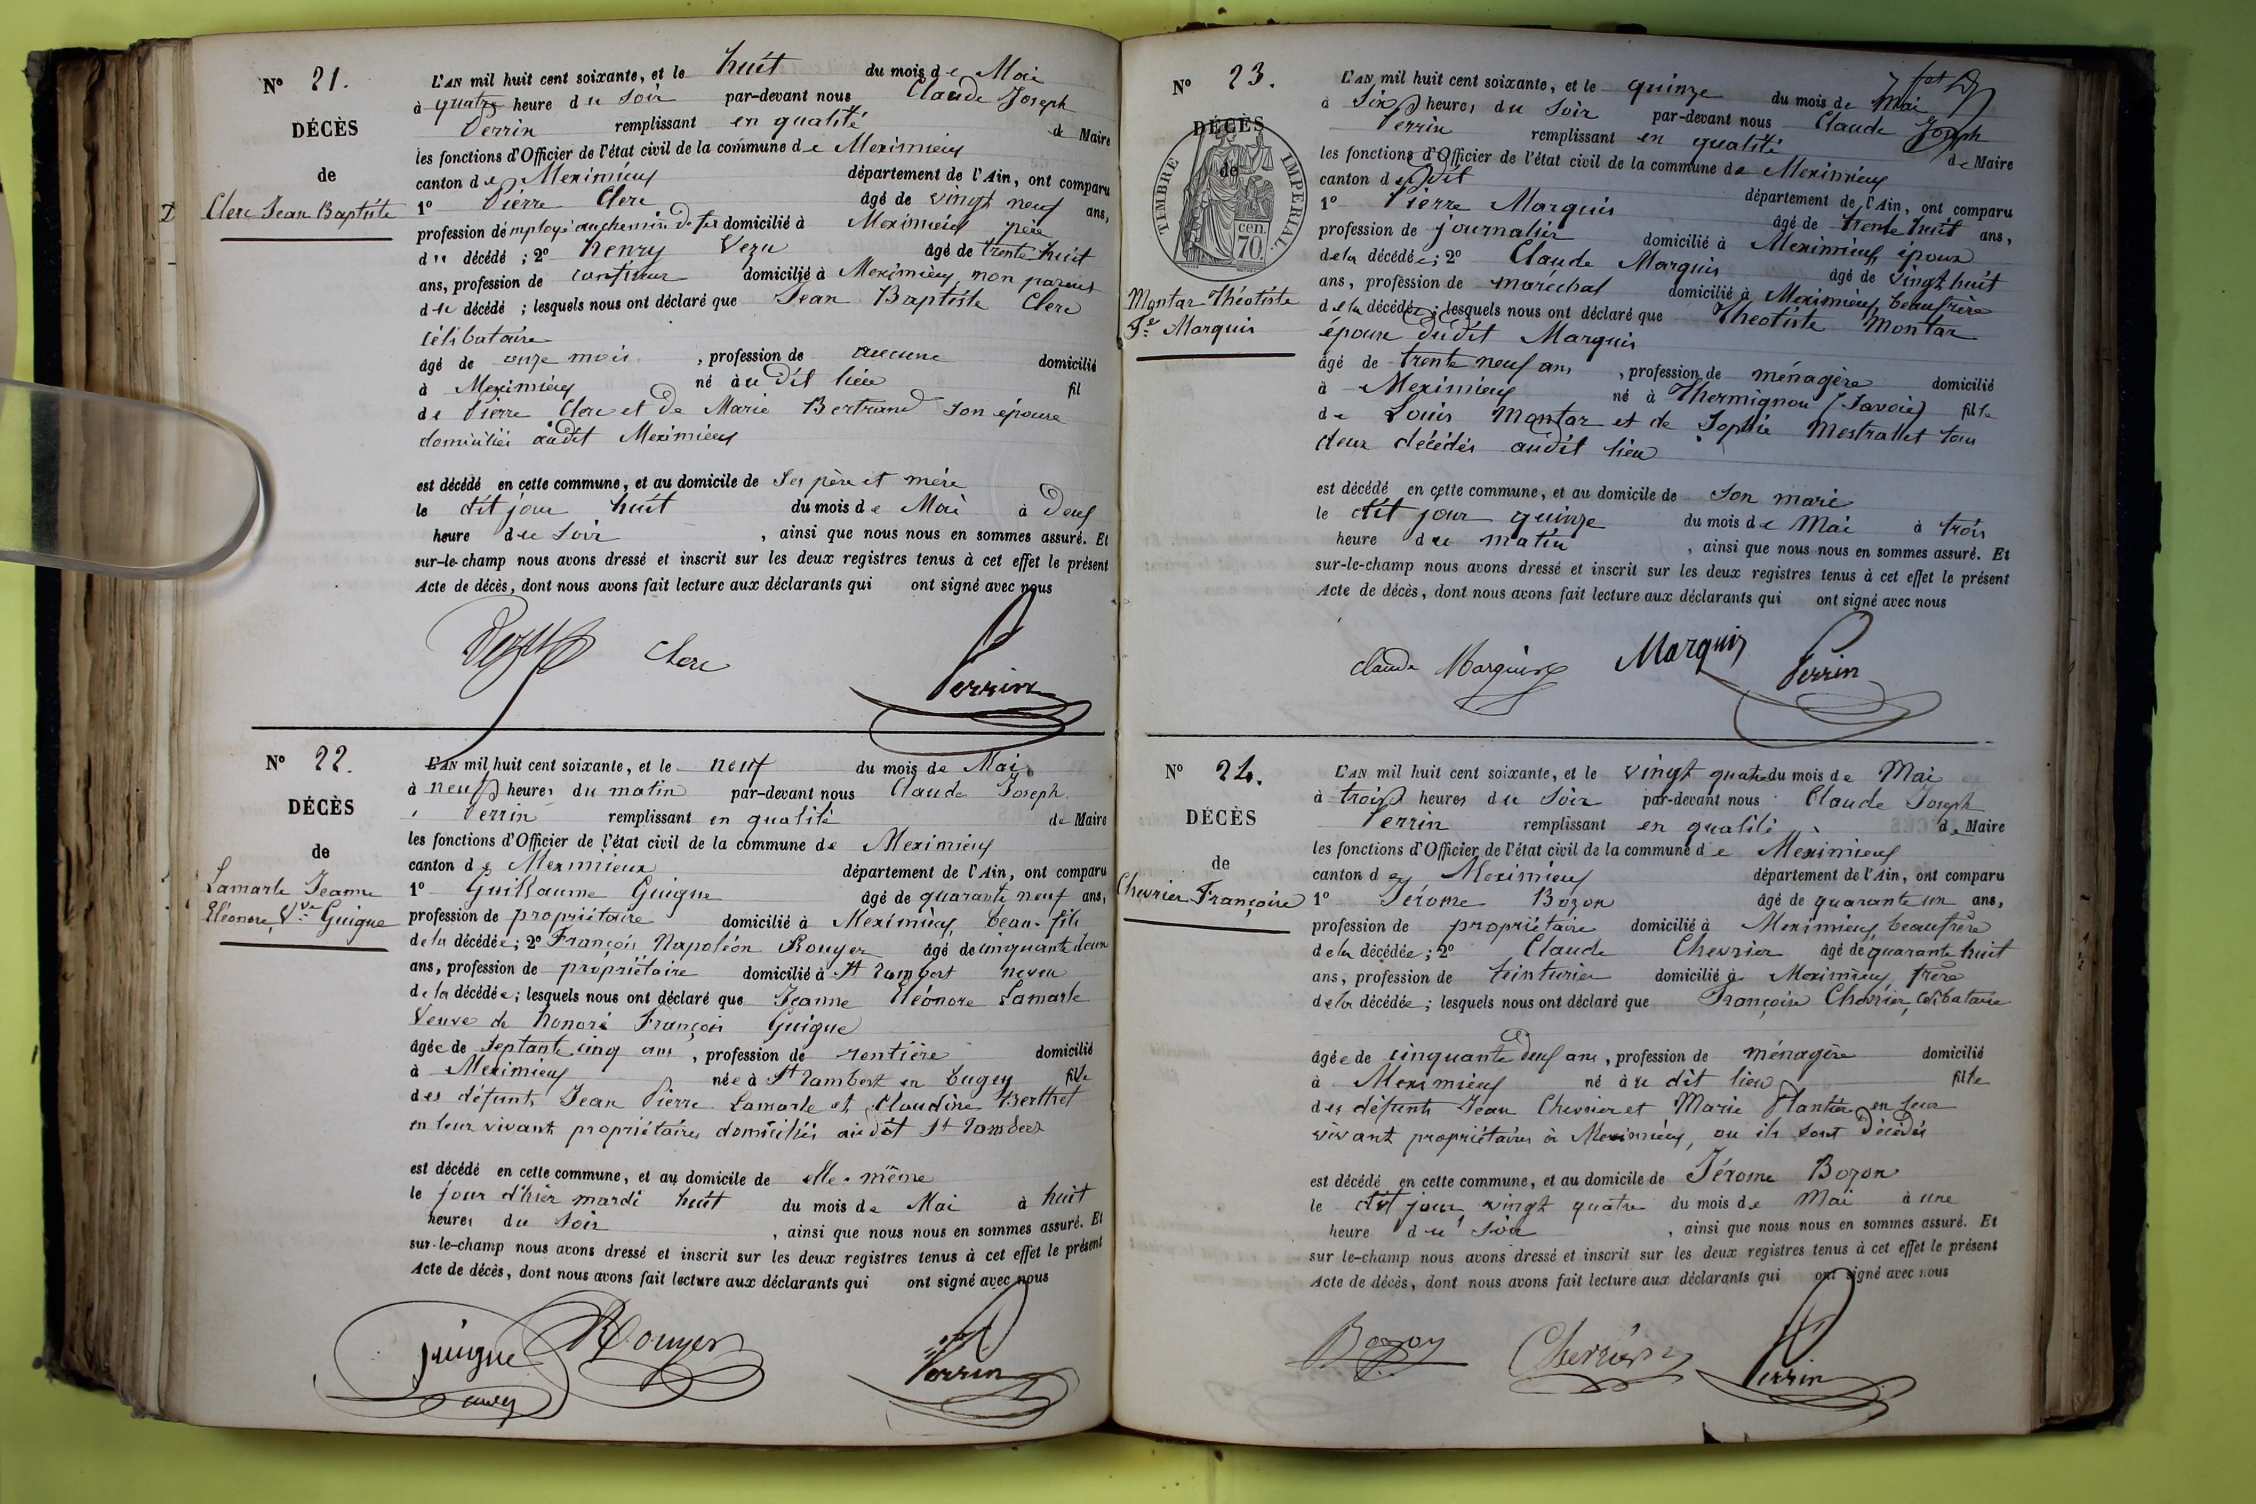 N° 21.
DÉCÈS
de
Clerc Jean Baptiste
L'AN mil huit cent soixante, et le huit du mois de Mai
à quatre heure du Soir par-devant nous Claude Joseph
Perrin remplissant en qualité de Maire
les fonctions d'Officier de l'état civil de la commune de Meximieux
canton de Meximieux département de l'Ain, ont comparu
1° Pierre Clerc âgé de vingt neuf ans,
profession d'employé au chemin de fer domicilié à Meximieux père
du décédé ; 2° henry Vezu âgé de trente huit
ans, profession de confiseur domicilié à Meximieux non parent
du décédé ; lesquels nous ont déclaré que Jean Baptiste Clerc
Célibataire
âgé de onze mois , profession de aucune domicilié
à Meximieux né au dit lieu fil
de Pierre Clerc et de Marie Bertrand son épouse
domiciliés audit Meximieux
est décédé en cette commune, et au domicile de Ses père et mère
le dit jour huit du mois de Mai à Deux
heure du Soir , ainsi que nous nous en sommes assuré. Et
sur-le-champ nous avons dressé et inscrit sur les deux registres tenus à cet effet le présent
Acte de décès, dont nous avons fait lecture aux déclarants qui ont signé avec nous
Clerc Perrin
N° 22.
DÉCÈS
de
Lamarle Jeanne
Eléonore, Vve Guigue
L'AN mil huit cent soixante, et le neuf du mois de Mai
à neuf heures du matin par-devant nous Claude Joseph
Perrin remplissant en qualité de Maire
les fonctions d'Officier de l'état civil de la commune de Meximieux
canton de Meximieux département de l'Ain, ont comparu
1° Guillaume Guigue âgé de quarante neuf ans,
profession de propriétaire domicilié à Meximieux, beau-fils
de la décédée ; 2° François Napoléon Rouyer âgé de cinquante deux
ans, profession de propriétaire domicilié à St Rambert neveu
de la décédée ; lesquels nous ont déclaré que Jeanne Eléonore Lamarle
Veuve de honoré François Guigue
âgée de Septante cinq ans , profession de rentière domicilié
à Meximieux née à St Rambert en bugey fille
des défunts Jean Pierre Lamarle et Claudine Berthet
en leur vivant propriétaires domiciliés audit St Rambert
est décédé en cette commune, et au domicile de elle-même
le jour d'hier mardi huit du mois de Mai à huit
heures du Soir , ainsi que nous nous en sommes assuré. Et
sur-le-champ nous avons dressé et inscrit sur les deux registres tenus à cet effet le présent
Acte de décès, dont nous avons fait lecture aux déclarants qui ont signé avec nous
Guigue Rouyer Perrin
N° 23.
DÉCÈS
de
TIMBRE IMPERIAL
cen.
70.
Montaz Théotiste
Fe Marquis
L'AN mil huit cent soixante, et le quinze du mois de Mai
à Six heures du Soir par-devant nous Claude Joseph
Perrin remplissant en qualité de Maire
les fonctions d'Officier de l'état civil de la commune de Meximieux
canton dudit département de l'Ain, ont comparu
1° Pierre Marquis âgé de trente huit ans,
profession de journalier domicilié à Meximieux, époux
de la décédée ; 2° Claude Marquis âgé de vingt huit
ans, profession de maréchal domicilié à Meximieux, beaufrère
de la décédée ; lesquels nous ont déclaré que Théotiste Montaz
épouse dudit Marquis
âgé de trente neuf ans , profession de ménagère domicilié
à Meximieux né à Thermignon (Savoie) fille
de Louis Montaz et de Sophie Mestrallet tous
deux décédés audit lieu
est décédé en cette commune, et au domicile de Son mari
le dit jour quinze du mois de Mai à trois
heure du matin , ainsi que nous nous en sommes assuré. Et
sur-le-champ nous avons dressé et inscrit sur les deux registres tenus à cet effet le présent
Acte de décès, dont nous avons fait lecture aux déclarants qui ont signé avec nous
Claude Marquis Marquis Perrin
N° 24.
DÉCÈS
de
Chevrier Françoise
L'AN mil huit cent soixante, et le vingt quatre du mois de Mai
à trois heures du Soir par-devant nous Claude Joseph
Perrin remplissant en qualité de Maire
les fonctions d'Officier de l'état civil de la commune de Meximieux
canton de Meximieux département de l'Ain, ont comparu
1° Jérome Bozon âgé de quarante un ans,
profession de propriétaire domicilié à Meximieux beaufrère
de la décédée ; 2° Claude Chevrier âgé de quarante huit
ans, profession de teinturier domicilié à Meximieux, frère
de la décédée ; lesquels nous ont déclaré que Françoise Chevrier, Célibataire
âgée de cinquante deux ans , profession de ménagère domicilié
à Meximieux né au dit lieu fille
des défunts Jean Chevrier et Marie Plantier en leur
vivant propriétaires à Meximieux, ou ils sont Décédés
est décédé en cette commune, et au domicile de Jérome Bozon
le dit jour vingt quatre du mois de Mai à une
heure du Soir , ainsi que nous nous en sommes assuré. Et
sur le-champ nous avons dressé et inscrit sur les deux registres tenus à cet effet le présent
Acte de décès, dont nous avons fait lecture aux déclarants qui ont signé avec nous
Bozon Chevrier Perrin